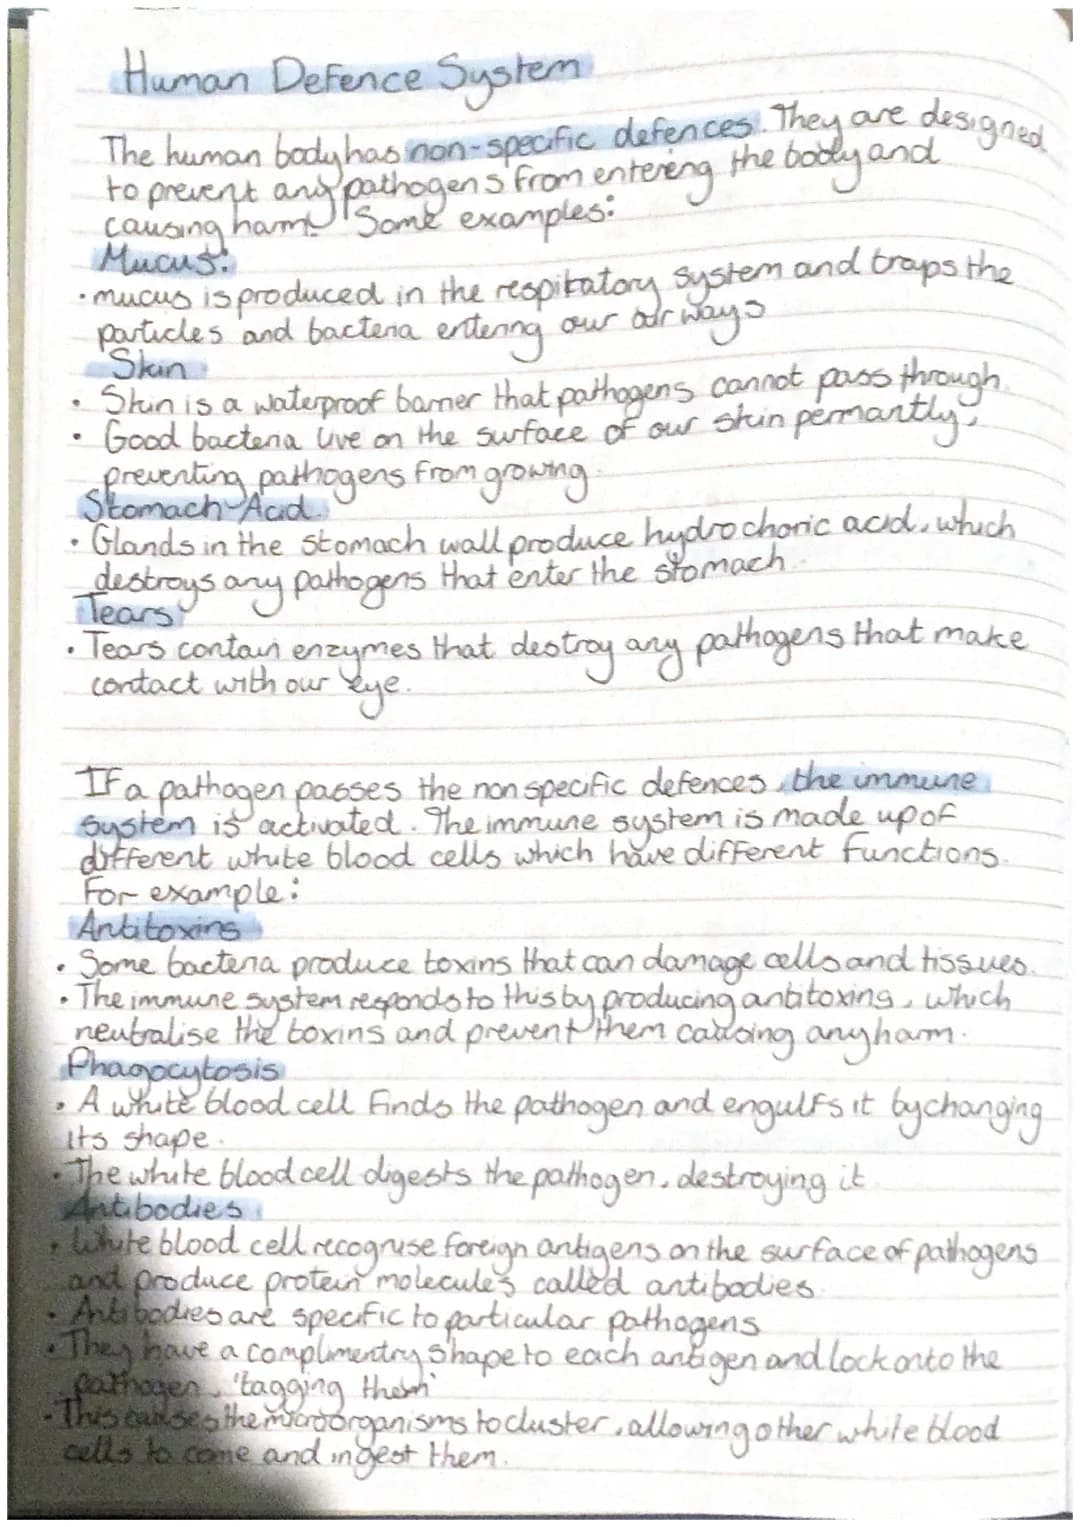 Human Defence System
The human body has non-specific defences. They are designed
to prevent any pathogens from entereng the body and
causing harm. Some examples:
Mucus:
• mucus is produced in the respitatory system and traps the
particles and bacteria entering our air ways
Skin
• Skin is a waterproof barrier that pathogens cannot pass through.
• Good bacteria live on the surface of our skin permantly,
preventing pathogens from growing.
Stomach Acid.
• Glands in the stomach wall produce hydrochoric acid, which
destroys any pathogens that enter the stomach.
Tears
• Tears contain enzymes that destroy any pathogens that make
contact with our eye.
If a pathogen passes the non specific defences, the immune
system is activated. The immune system is made up of
different white blood cells which have different functions.
For example:
Antitoxins
• Some bacteria produce toxins that can damage cells and tissues.
• The immune system responds to this by producing antitoxins, which
neutralise the toxins and prevent them causing any harm.
Phagocytosis
• A white blood cell finds the pathogen and engulfs it by changing
its shape.
• The white blood cell digests the pathogen, destroying it
Antibodies
• White blood cell recognise foreign antigens on the surface of pathogens
and produce protein molecules called antibodies.
• Antibodies are specific to particular pathogens
• They have a complimentry shape to each antigen and lock onto the
pathogen, 'tagging them'
• This causes the microorganisms to cluster, allowing other white blood
cells to come and ingest them.